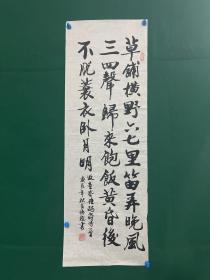 草鋪橫野六七里笛弄晚風
三四聲歸來飽飯黃昏後
不脫蓑衣臥月明